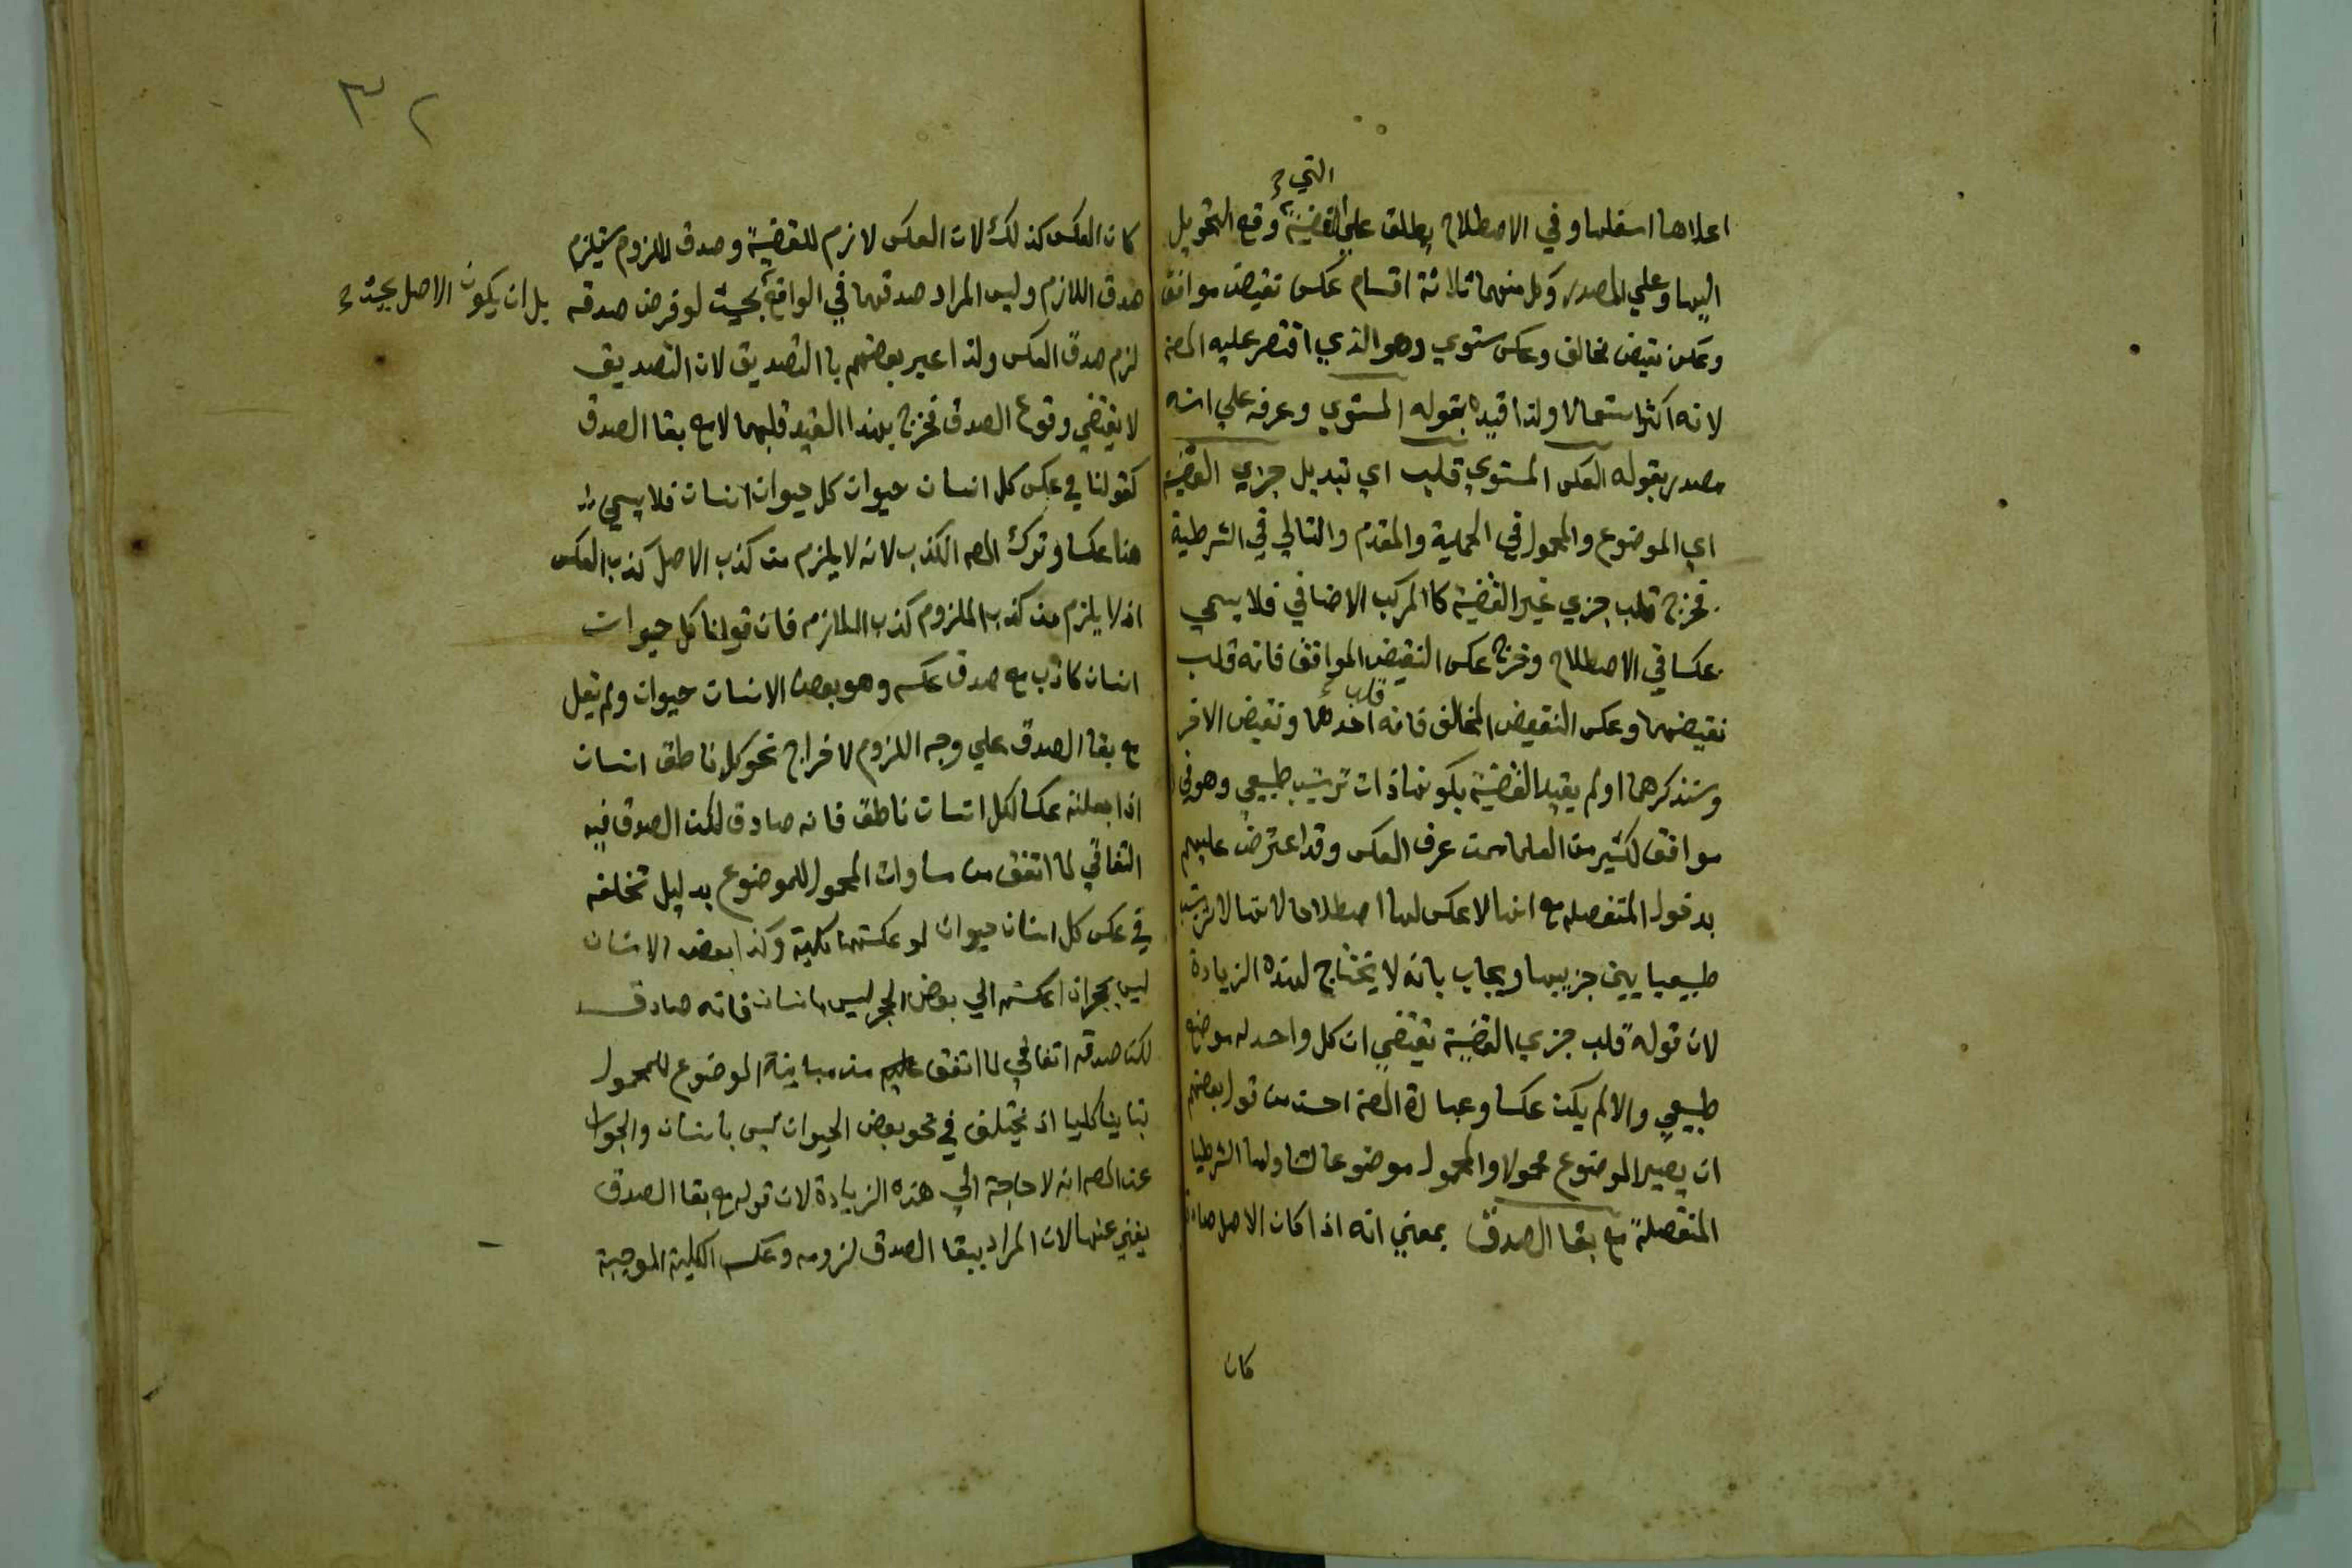 التي
اعلاها اسفلها وفي الاصطلاح يطلق علي القضية وقع التحويل
اليها وعلي المصدر وكل منهما ثلاثة اقسام عكس نقيض موافق
وعكس نقيض مخالف وعكس مستوي وهو الذي اقتصر عليه المصہ
لانه اكثر استعمالا ولذا قيده بقوله المستوي وعرفه علي انه
مصدر بقوله العكس المستوي قلب اي تبديل جزي القضية
اي الموضوع والمحمول في الحملية والمقدم والتالي في الشرطية
فخرج قلب جزي غير القضية كا المركب الاضافي فلا يسمي
عكسا في الاصطلاح وخرج عكس النقيض الموافق فانه قلب
قلب
نقيضهما وعكس النقيض المخالف فانه احدهما ونقيض الاخر
وستذكرهما ولم يقيد القضية بكونها ذات ترتيب طبيعي وهو في
موافق لكثير من العلما ممن عرف العكس وقد اعترض عليهم
بدخول المنفصله مع انها لا عكس لها اصطلاحا لانها لا ترتيب
طبيعيا بين جزييها ويجاب بانه لا يحتاج لهذه الزيادة
لان قوله قلب جزي القضية يقتضي ان كل واحد له موضع
طبيعي والا لم يكن عكسا وعبارة المصہ احسن من قول بعضهم
ان يصير الموضوع محمولا والمحمول موضوعا لتناولها الشرطيا
المتصلة مع بقا الصدق بمعني انه اذا كان الاصل صادقا
كان
٣٢
كان العكس كذلك لان العكس لازم للقضية وصدق الملزوم يستلزم
صدق اللازم وليس المراد صدقهما في الواقع بحيث لو فرض صدقه
بل ان يكون الاصل بحيث
لزم صدق العكس ولذا عبر بعضهم با التصديق لان التصديق
لا يقتضي وقوع الصدق فخرج بهذا القيد قلبهما لا مع بقا الصدق
كقولنا في عكس كل انسان حيوان كل حيوان انسان فلا يسمي
هنا عكسا وترك المصہ الكذب لانه لا يلزم من كذب الاصل كذب العكس
اذ لا يلزم من كذب الملزوم كذب اللازم فان قولنا كل حيوان
انسان كاذب مع صدق عكسه وهو بعض الانسان حيوان ولم يقل
مع بقا الصدق علي وجه اللزوم لاخراج نحو كل ناطق انسان
اذا جعلته عكسا لكل انسان ناطق فانه صادق لكن الصدق فيه
اتفاقي لما اتفق من مساوات المحمول للموضوع بدليل تخلفه
في عكس كل انسان حيوان لو عكستها كلية وكذا بعض الانسان
ليس بحجر اذا عكسته الي بعض الحجر ليس بانسان فانه صادق
لكن صدقه اتفاقي لما اتفق من مباينة الموضوع للمحمول
تباينا كليا اذ يختلف في نحو بعض الحيوان ليس بانسان والجواب
عن المصہ انه لا حاجة الي هذه الزيادة لان قوله مع بقا الصدق
يغني عنها لان المراد ببقا الصدق لزومه وعكس الكلية الموجبة